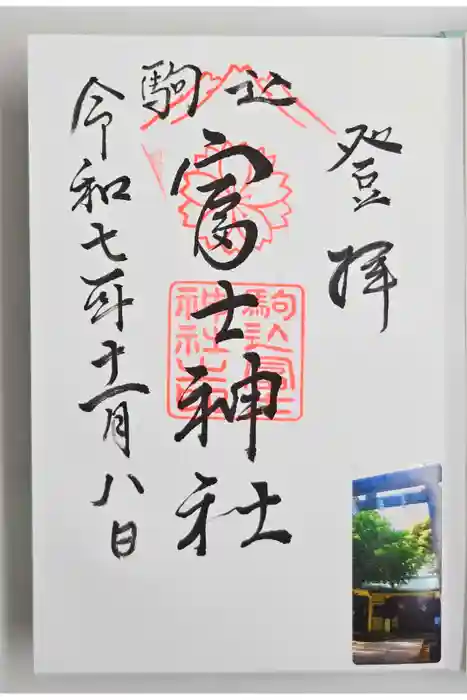 登拝
駒込
富士神社
令和七年十一月八日
駒込富士
神社